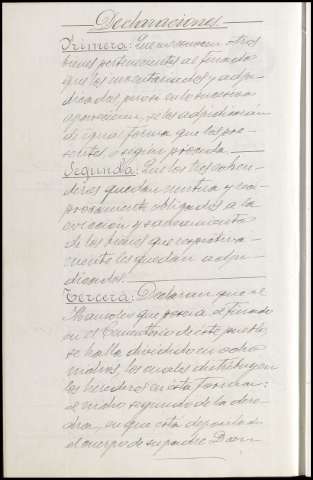 Declaraciones
Primera: Que no conocen otros
bienes pertenecientes al finado
que los inventariados y adju-
dicados pero si en lo sucesivo
aparecieren, se los adjudicarán
de igual forma que los pre-
sentes según proceda.
Segunda: Que los tres here-
deros quedan mutua y com-
obligados a la
evicción y saneamiento
de los bienes que respectiva-
mente les quedan adju-
dicados.
Tercera: Declaran que el
Mausoleo que poseía el finado
en el Cementerio de este pueblo
se halla dividido en ocho
nichos, los cuales distribuyen
los herederos en esta forma:
el nicho segundo de la dere-
cha, en que está depositado
el cuerpo de su padre Don